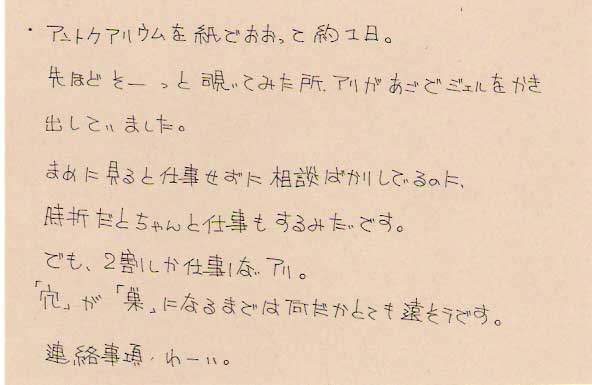 ・アントクアリウムを紙でおおって約1日。
先ほどそーっと覗いてみた所、アリがあごでジェルをかき
出していました。
まめに見ると仕事せずに相談ばかりしているのに、
時折だとちゃんと仕事もするみたいです。
でも、2割しか仕事しないアリ。
「穴」が「巣」になるまでは何だかとても遠そうです。
連絡事項、わーい。